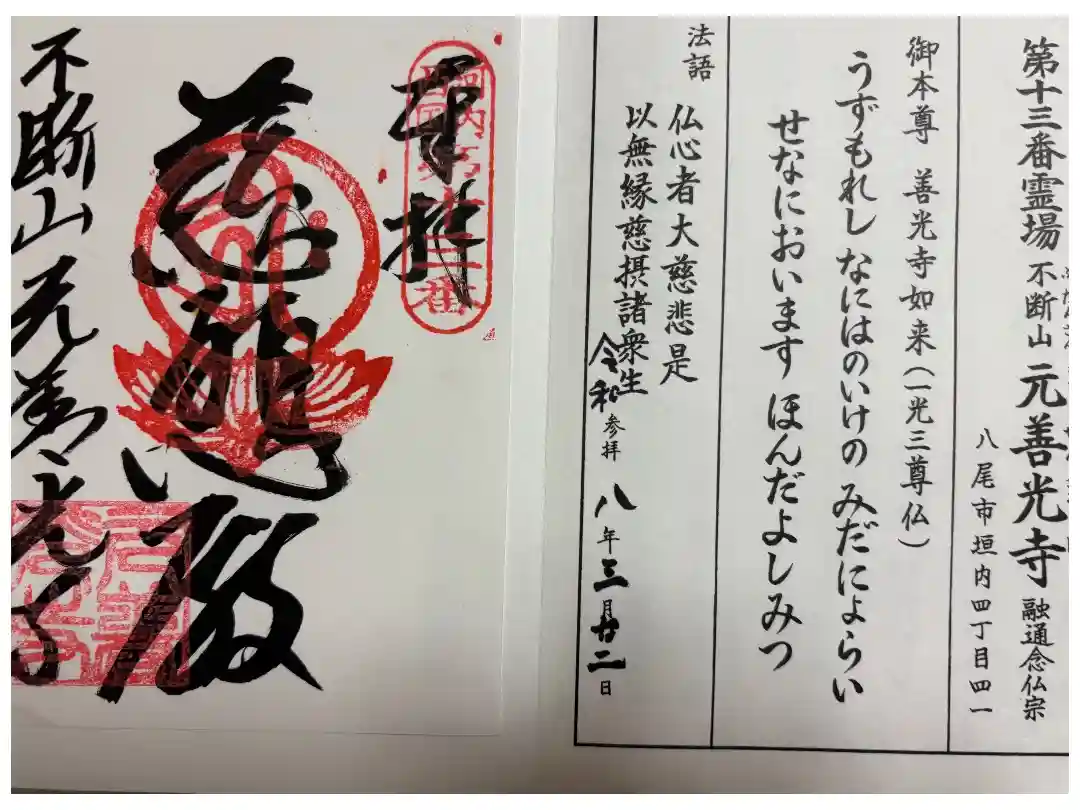 第十三番霊場 不断山 元善光寺 融通念仏宗
八尾市垣内四丁目四一
御本尊 善光寺如来(一光三尊仏)
うずもれし なにはのいけの みだによらい
せなにおいます ほんだよしみつ
法語
仏心者大慈悲是
以無縁慈摂諸衆生
令和 参拝 八年三月廿二日
奉拝
河内西国第十三番
慈悲殿
不断山 元善光寺